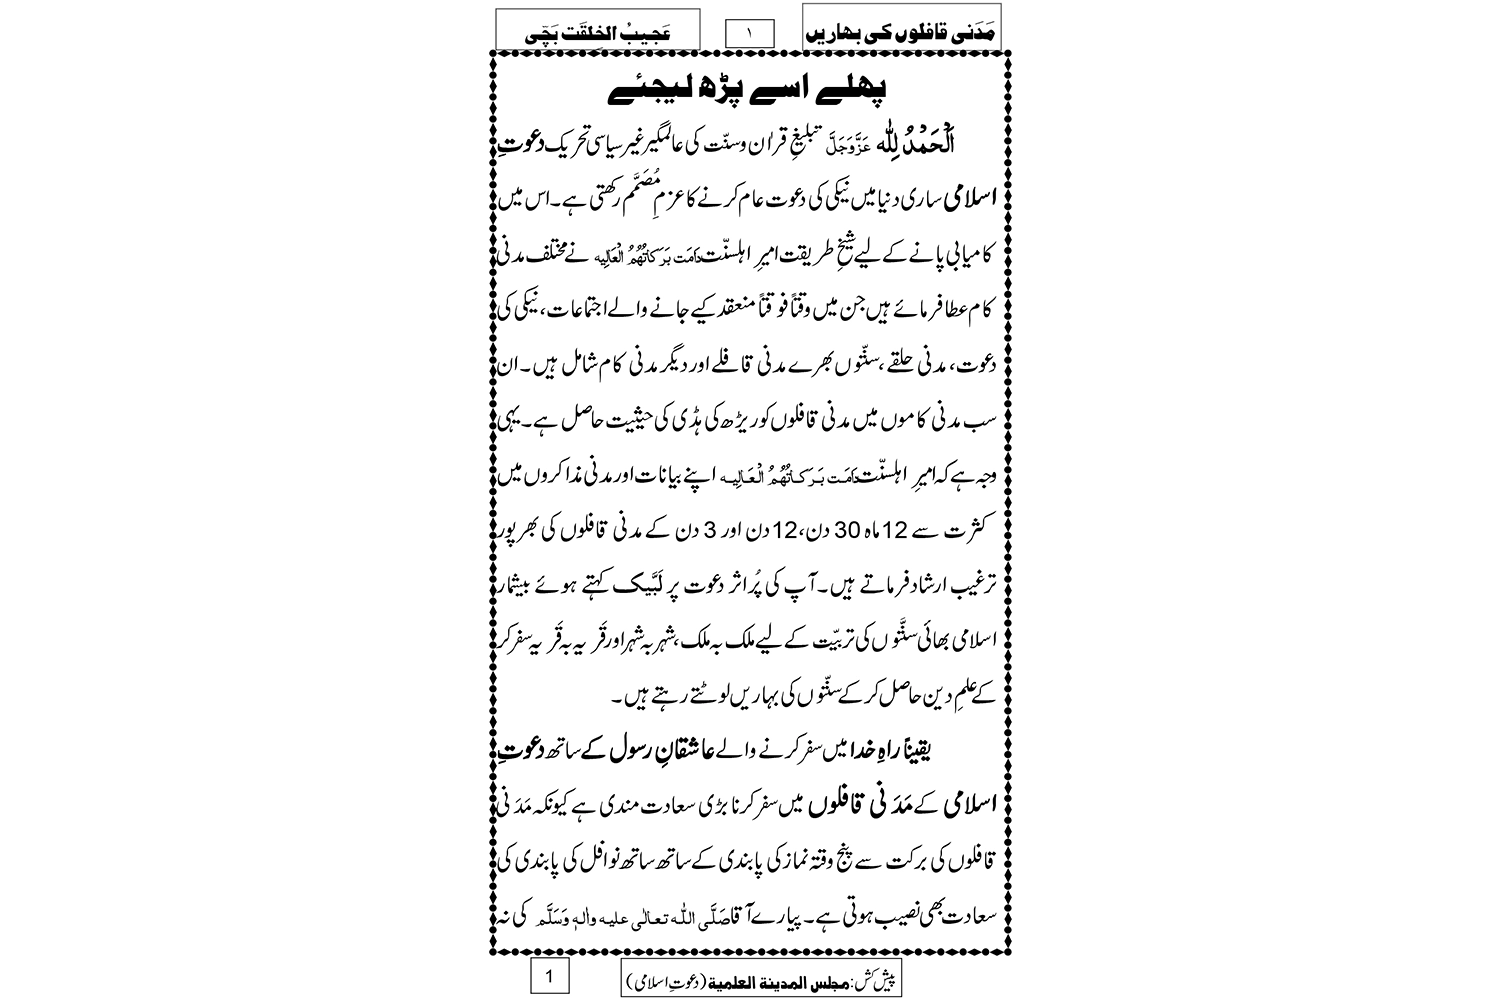 مَدَنی قافلوں کی بہاریں
١
عَجیبُ الخِلقَت بَچّی
پہلے اسے پڑھ لیجئے
اَلْحَمْدُ لِلّٰه عَزَّوَجَلَّ تبلیغِ قرآن وسنّت کی عالمگیر غیر سیاسی تحریک دعوتِ
اسلامی ساری دنیا میں نیکی کی دعوت عام کرنے کا عزمِ مُصَمَّم رکھتی ہے۔ اس میں
کامیابی پانے کے لیے شیخِ طریقت امیرِ اہلسنّت دَامَت بَرَکَاتُهُمُ الْعَالِيَه نے مختلف مدنی
کام عطا فرمائے ہیں جن میں وقتاً فوقتاً منعقد کیے جانے والے اجتماعات، نیکی کی
دعوت، مدنی حلقے، سنّتوں بھرے مدنی قافلے اور دیگر مدنی کام شامل ہیں۔ ان
سب مدنی کاموں میں مدنی قافلوں کو ریڑھ کی ہڈی کی حیثیت حاصل ہے۔ یہی
وجہ ہے کہ امیرِ اہلسنّت دَامَت بَرَکَاتُهُمُ الْعَالِيَه اپنے بیانات اور مدنی مذاکروں میں
کثرت سے 12 ماہ 30 دن، 12 دن اور 3 دن کے مدنی قافلوں کی بھرپور
ترغیب ارشاد فرماتے ہیں۔ آپ کی پُر اثر دعوت پر لَبَّیک کہتے ہوئے بیشمار
اسلامی بھائی سنَّتوں کی تربیّت کے لیے ملک بہ ملک، شہر بہ شہر اور قَریہ بہ قَریہ سفر کر
کے علمِ دین حاصل کر کے سنّتوں کی بہاریں لوٹتے رہتے ہیں۔
یقیناً راہِ خدا میں سفر کرنے والے عاشقانِ رسول کے ساتھ دعوتِ
اسلامی کے مَدَنی قافلوں میں سفر کرنا بڑی سعادت مندی ہے کیونکہ مَدَنی
قافلوں کی برکت سے پنج وقتہ نماز کی پابندی کے ساتھ ساتھ نوافل کی پابندی کی
سعادت بھی نصیب ہوتی ہے۔ پیارے آقا صَلَّی اللّٰہ تعالٰی علیہ واٰلہٖ وَسَلَّم کی نہ
پیش کش: مجلس المدینۃ العلمیۃ (دعوتِ اسلامی)
1